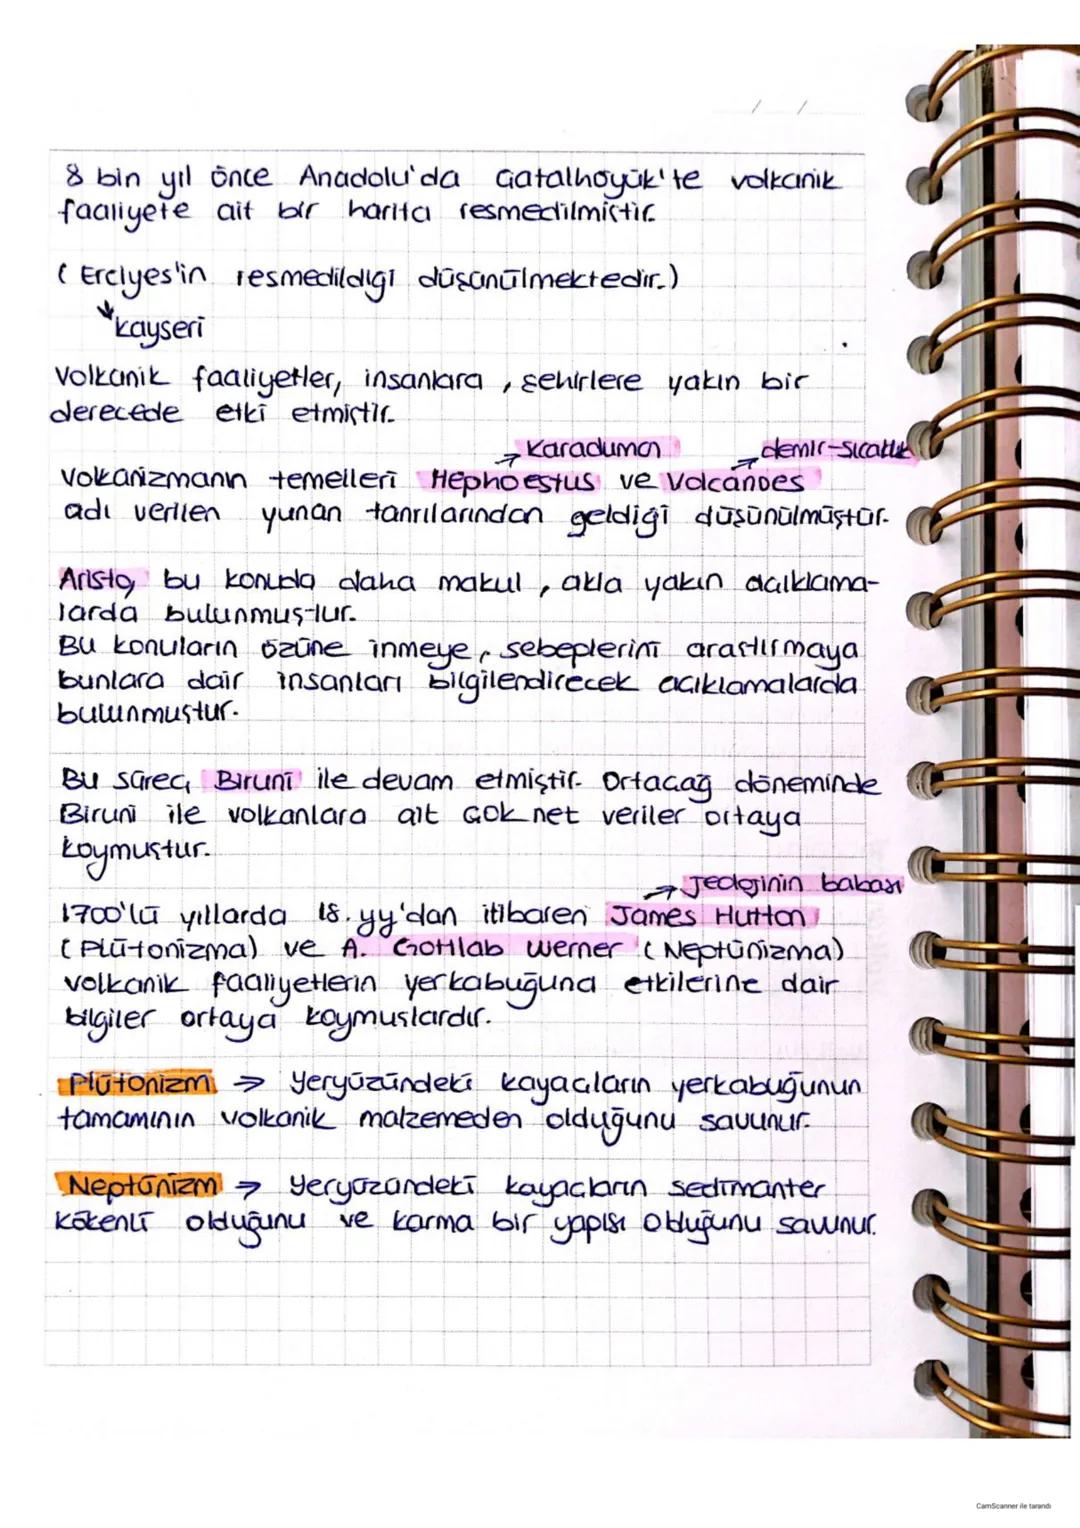 8 bin yıl önce Anadolu'da Çatalhöyük'te volkanik
faaliyete ait bir harita resmedilmiştir.
( Erciyes'in resmedildiği düşünülmektedir.)
kayseri
Volkanik faaliyetler, insanlara , şehirlere yakın bir
derecede etki etmiştir.
→ Karaduman → demir-sıcaklık
Volkanizmanın temelleri Hephoestus ve Volcanoes
adı verilen yunan tanrılarından geldiği düşünülmüştür.
Aristo, bu konuda daha makul , akla yakın açıklama-
larda bulunmuştur.
Bu konuların özüne inmeye, sebeplerini araştırmaya
bunlara dair insanları bilgilendirecek açıklamalarda
bulunmuştur.
Bu süreç, Biruni ile devam etmiştir. Ortaçağ döneminde
Biruni ile volkanlara ait çok net veriler ortaya
koymuştur.
→ Jeolojinin babası
1700'lü yıllarda 18. yy'dan itibaren James Hutton
(Plütonizma) ve A. Gottlab Werner (Neptünizma)
volkanik faaliyetlerin yerkabuğuna etkilerine dair
bilgiler ortaya koymuşlardır.
Plütonizm → Yeryüzündeki kayaçların yerkabuğunun
tamamının volkanik malzemeden olduğunu savunur.
Neptünizm → Yeryüzündeki kayaçların sedimanter
kökenli olduğunu ve karma bir yapısı olduğunu savunur.
CamScanner ile tarandı